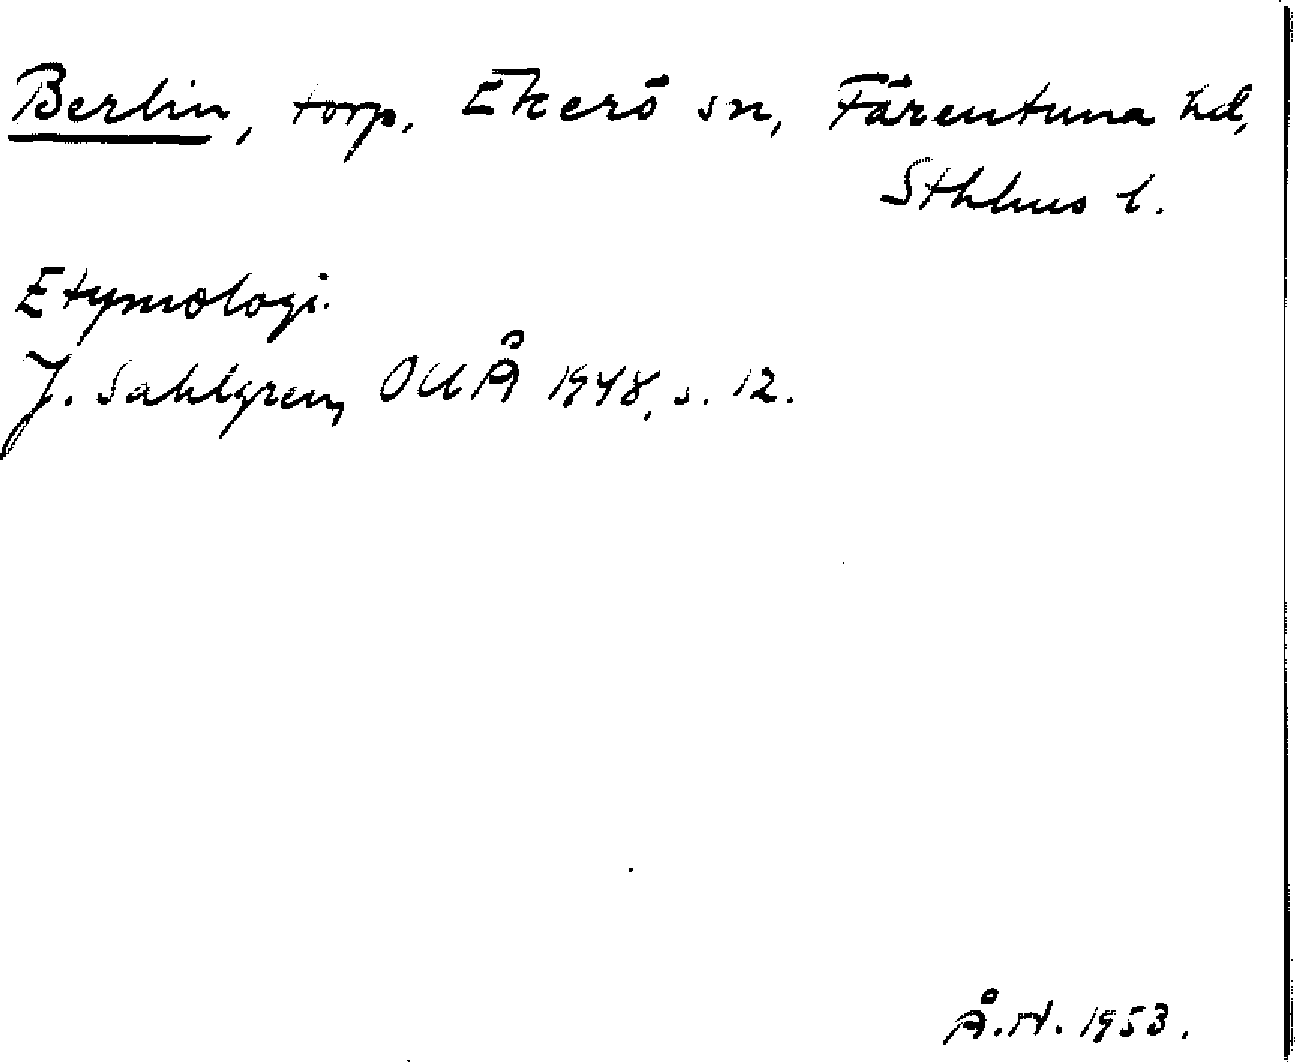 Berlin, torp, Ekerö sn, Färentuna hd,
Sthlms l.
Etymologi.
J. Sahlgren, OUÅ 1948, s. 12.
Å.N. 1953.